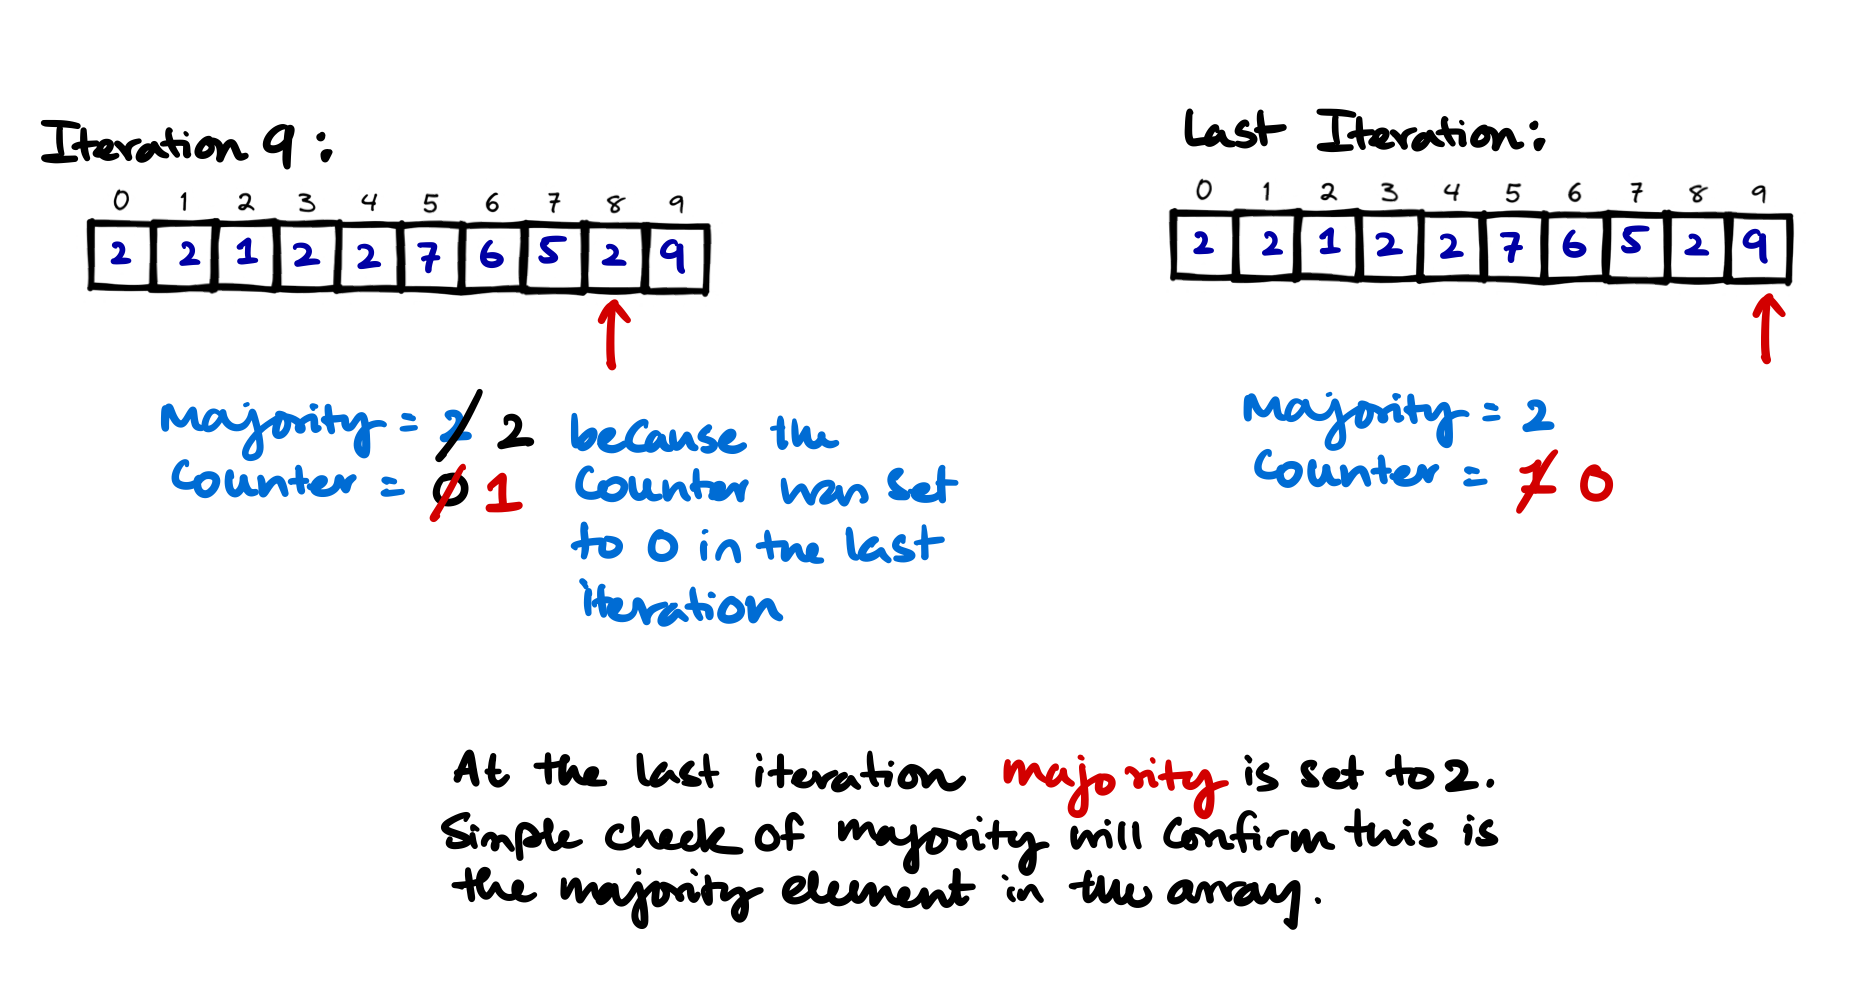 Iteration 9:
0 1 2 3 4 5 6 7 8 9
2 2 1 2 2 7 6 5 2 9
Majority = 2 2 because the
Counter = 0 1 Counter was set
to 0 in the last
iteration
Last Iteration:
0 1 2 3 4 5 6 7 8 9
2 2 1 2 2 7 6 5 2 9
Majority = 2
Counter = 1 0
At the last iteration majority is set to 2.
Simple check of majority will confirm this is
the majority element in the array.